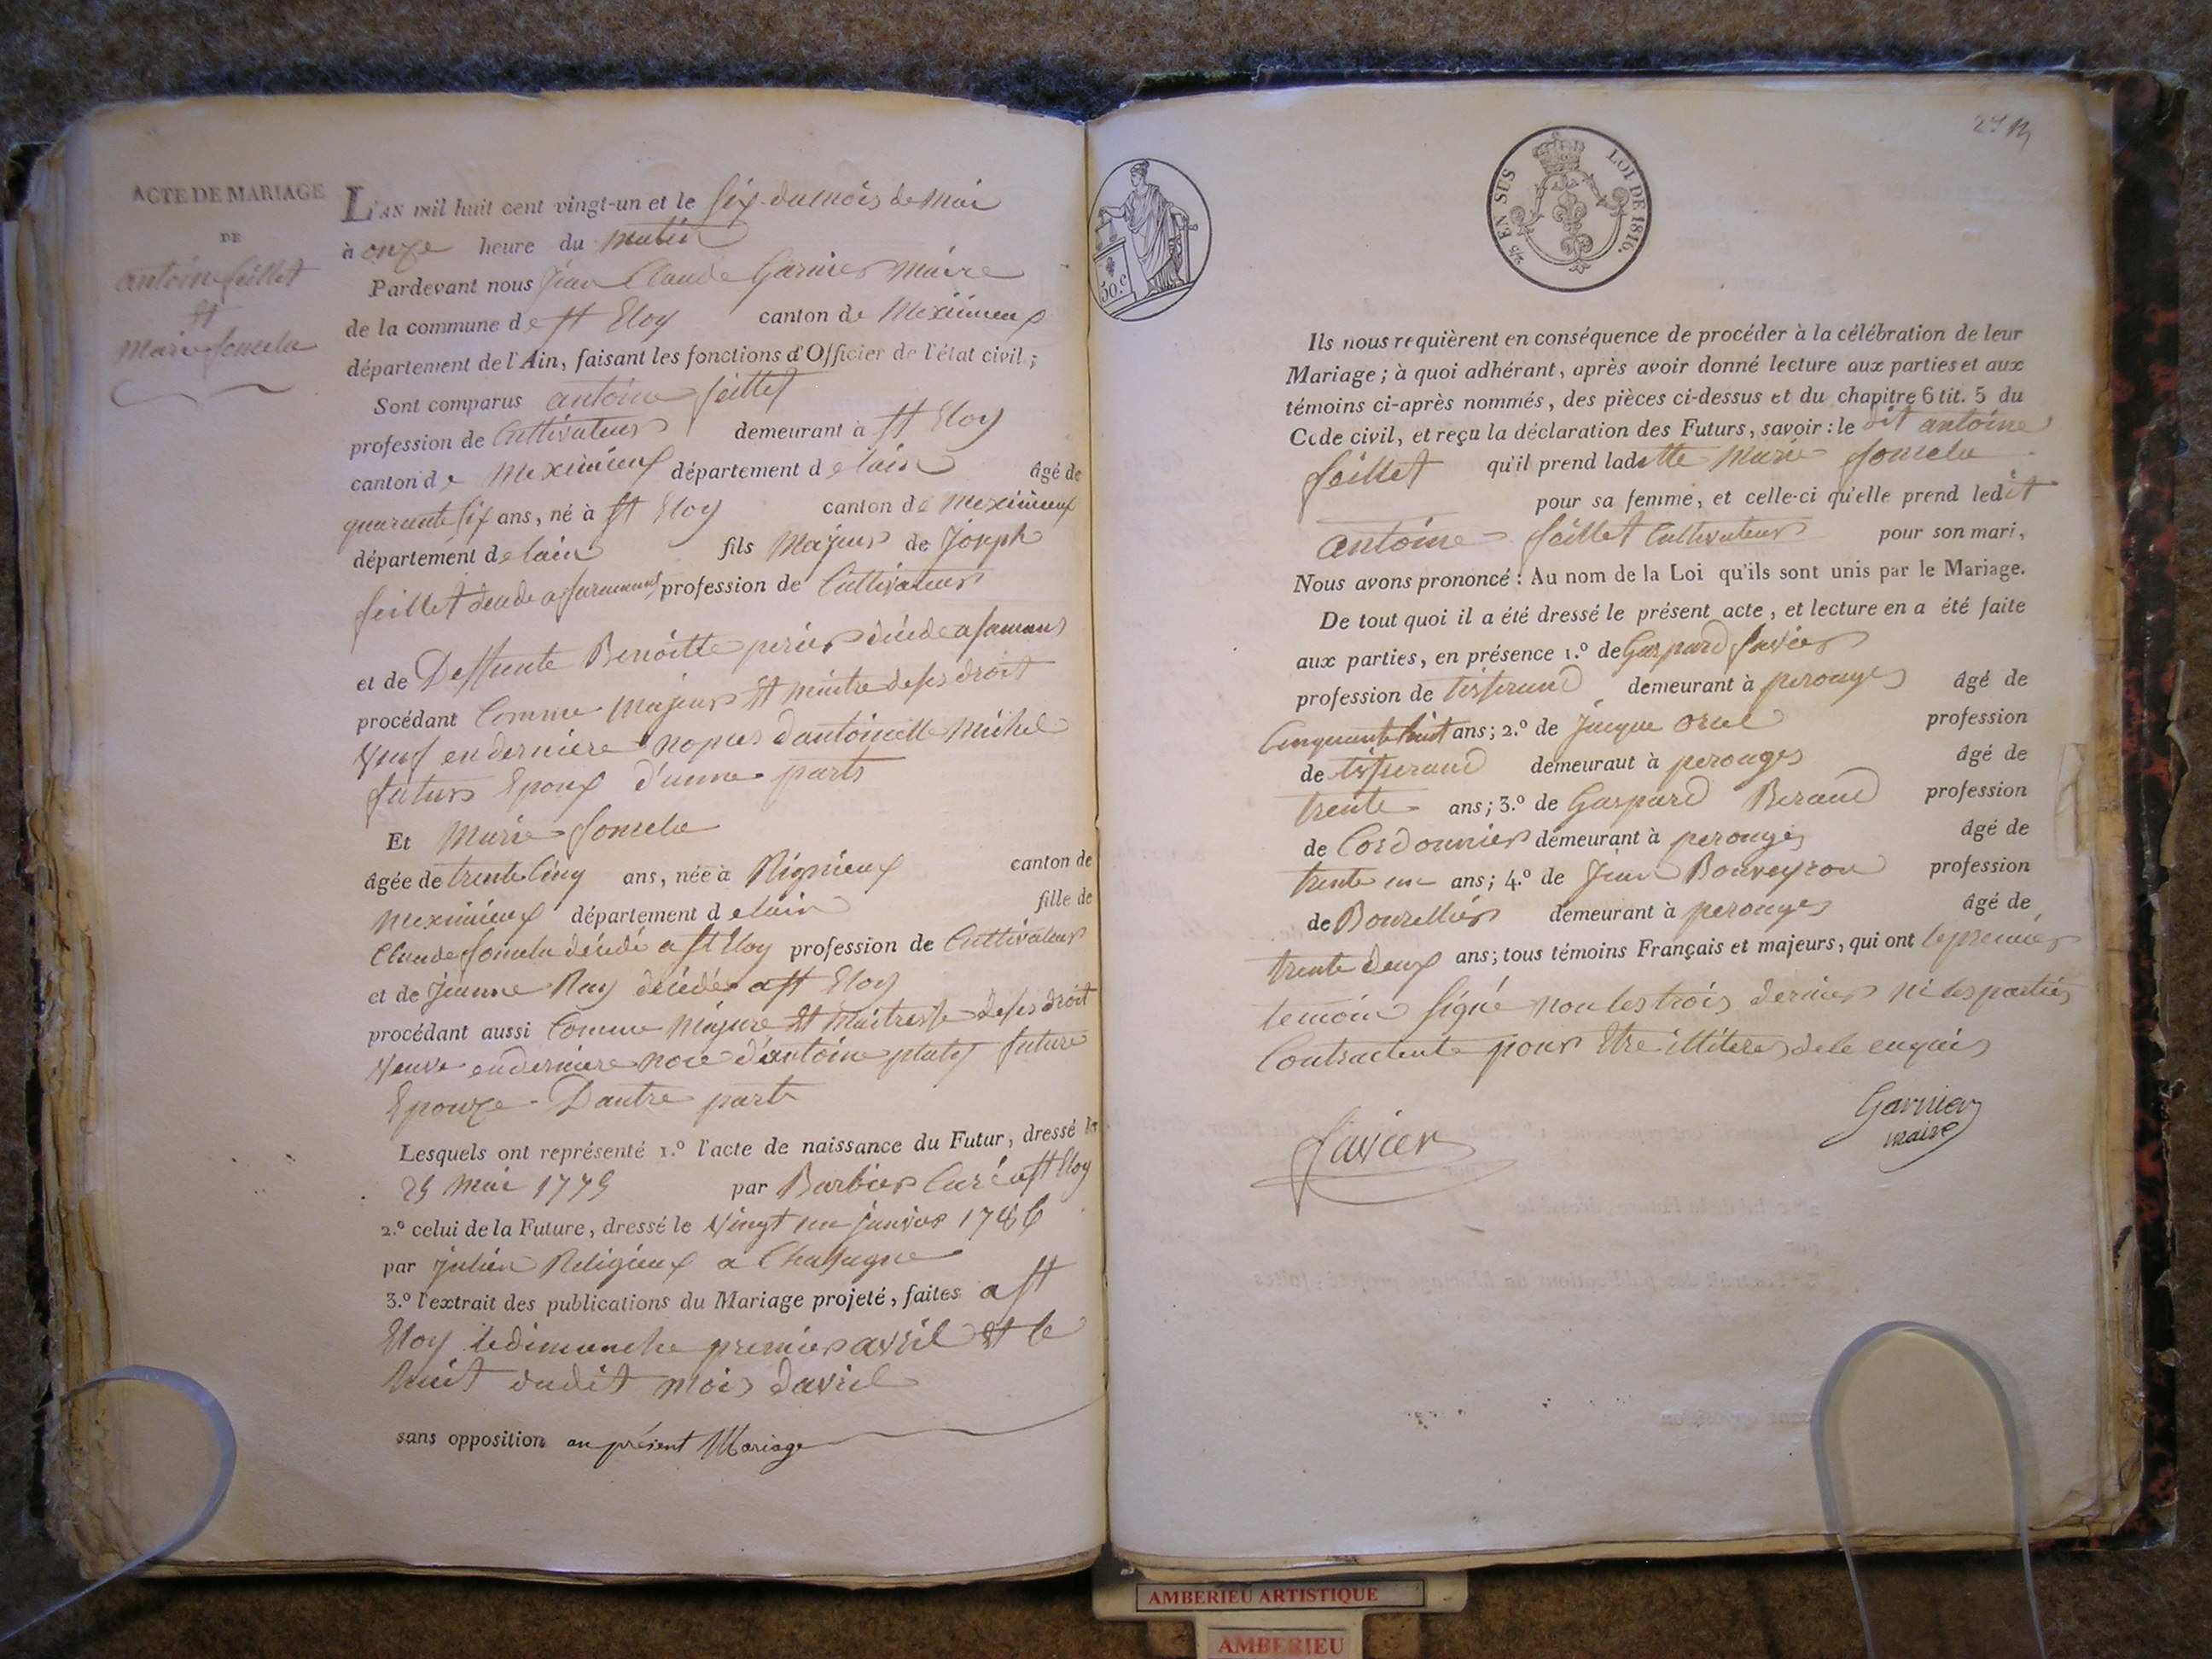 ACTE DE MARIAGE
DE
antoine feillet
et
Marie fomelu
L'AN mil huit cent vingt-un et le six du mois de Mai
à onze heure du matin
Pardevant nous jean Claude Garnier Maire
de la commune de st Eloy canton de Meximieux
département de l'Ain, faisant les fonctions d'Officier de l'état civil;
Sont comparus antoine feillet
profession de Cultivateur demeurant à st Eloy
canton de Meximieux département de lain âgé de
quarante six ans, né à st Eloy canton de Meximieux
département de lain fils Majeur de Joseph
feillet décédé a profession de Cultivateur
et de Deffunte Benoitte perier décédé a
procédant Comme Majeur et Maitre de ses droit
Veuf en derniere nopces dantoinette Michel
futurs Epoux d'unne parts
Et Marie
âgée de trente Cinq ans, née à Rignieux canton de
Meximieux département de lain fille de
Claude décédé a st Eloy profession de Cultivateur
et de Jeanne Ray décédé a st Eloy
procédant aussi Comme Majure et Maitresse de ses droit
Veuve en derniere noce d'antoine future
Epouze - Dautre part
Lesquels ont représenté 1.º l'acte de naissance du Futur, dressé le
Mai par Barbier Curé a st Eloy
2.º celui de la Future, dressé le Vingt un janvier 1786
par julien Religieux a Chassagne
3.º l'extrait des publications du Mariage projeté, faites a st
Eloy le dimanche premier avril et le
huit dudit mois davril
sans opposition au présent Mariage
50.c
5/4 EN SUS LOI DE 1816.
Ils nous requièrent en conséquence de procéder à la célébration de leur
Mariage; à quoi adhérant, après avoir donné lecture aux parties et aux
témoins ci-après nommés, des pièces ci-dessus et du chapitre 6 tit. 5 du
Code civil, et reçu la déclaration des Futurs, savoir: le dit antoine
feillet qu'il prend laditte Marie
pour sa femme, et celle-ci qu'elle prend ledit
antoine feillet Cultivateur pour son mari,
Nous avons prononcé: Au nom de la Loi qu'ils sont unis par le Mariage.
De tout quoi il a été dressé le présent acte, et lecture en a été faite
aux parties, en présence 1.º de Gaspard favier
profession de tisserand demeurant à perouges âgé de
Cinquante huit ans; 2.º de Jacque profession
de tisserand demeuraut à perouges âgé de
trente ans; 3.º de Gaspard Beraud profession
de Cordonnier demeurant à perouges âgé de
trente un ans; 4.º de Jean Bouveyron profession
de Bourellier demeurant à perouges âgé de
trente deux ans; tous témoins Français et majeurs, qui ont le premier
temoin signé non les trois dernier ni les parties
Contractente pour Etre illiteré de ce enquis
favier
Garnier
maire
AMBERIEU ARTISTIQUE
AMBERIEU